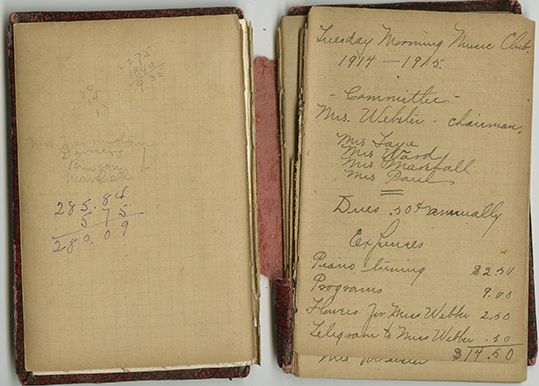 2.75
285.84
5 75
280.09
Tuesday Morning Music Club.
1914 — 1915.
- Committee -
Mrs. Webster - chairman.
Mrs Taye
Mrs Ward
Mrs Marshall
Mrs Paul
Dues .50¢ annually
Expenses
Piano tuning $2.50
Programs 9.00
Flowers for Miss Webber 2.50
Telegram to Miss Webber .50
$14.50